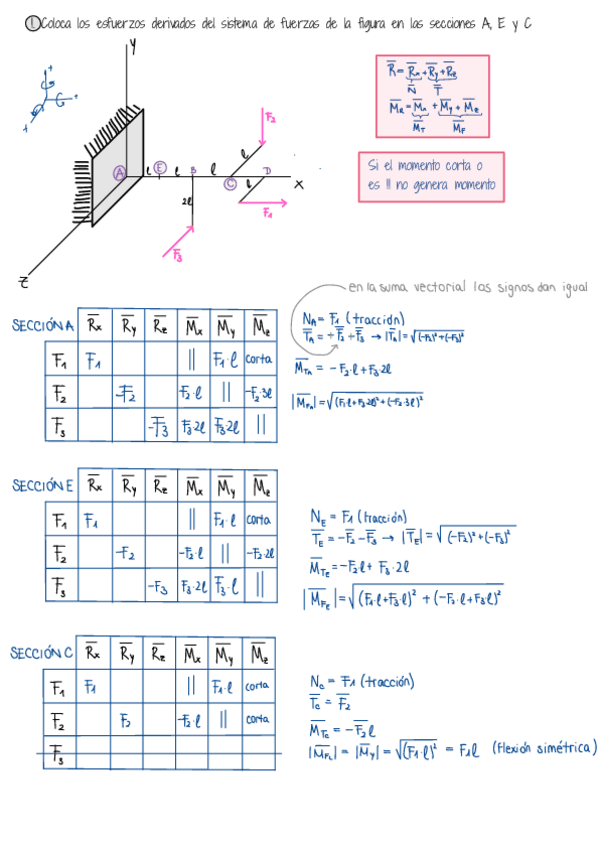 1. Coloca los esfuerzos derivados del sistema de fuerzas de la figura en las secciones A, E y C
R̅ = R̅x + R̅y + R̅z
N̅ T̅
M̅R = M̅x + M̅y + M̅z
M̅T M̅F
Si el momento corta o
es || no genera momento
y
A
l
E
l
B
l
C
l
D
x
z
l
2l
F̅2
F̅1
F̅3
en la suma vectorial los signos dan igual
SECCIÓN A R̅x R̅y R̅z M̅x M̅y M̅z
F̅1 F1 || F1·l corta
F̅2 -F2 F2·l || -F2·3l
F̅3 -F3 F3·2l F3·2l ||
NA = F1 (tracción)
T̅A = -F̅2 - F̅3 → |T̅A| = √(-F2)²+(-F3)²
M̅TA = -F2·l + F3·2l
|M̅FA| = √(F1·l+F3·2l)²+(-F2·3l)²
SECCIÓN E R̅x R̅y R̅z M̅x M̅y M̅z
F̅1 F1 || F1·l corta
F̅2 -F2 -F2·l || -F2·2l
F̅3 -F3 F3·2l F3·l ||
NE = F1 (tracción)
T̅E = -F̅2 - F̅3 → |T̅E| = √(-F2)²+(-F3)²
M̅TE = -F2l + F3·2l
|M̅FE| = √(F1·l+F3·l)² + (-F2·l+F3l)²
SECCIÓN C R̅x R̅y R̅z M̅x M̅y M̅z
F̅1 F1 || F1·l corta
F̅2 F2 -F2·l || corta
F̅3
NC = F1 (tracción)
T̅C = F̅2
M̅TC = -F̅2l
|M̅FC| = |M̅y| = √(F1·l)² = F1l (flexión simétrica)